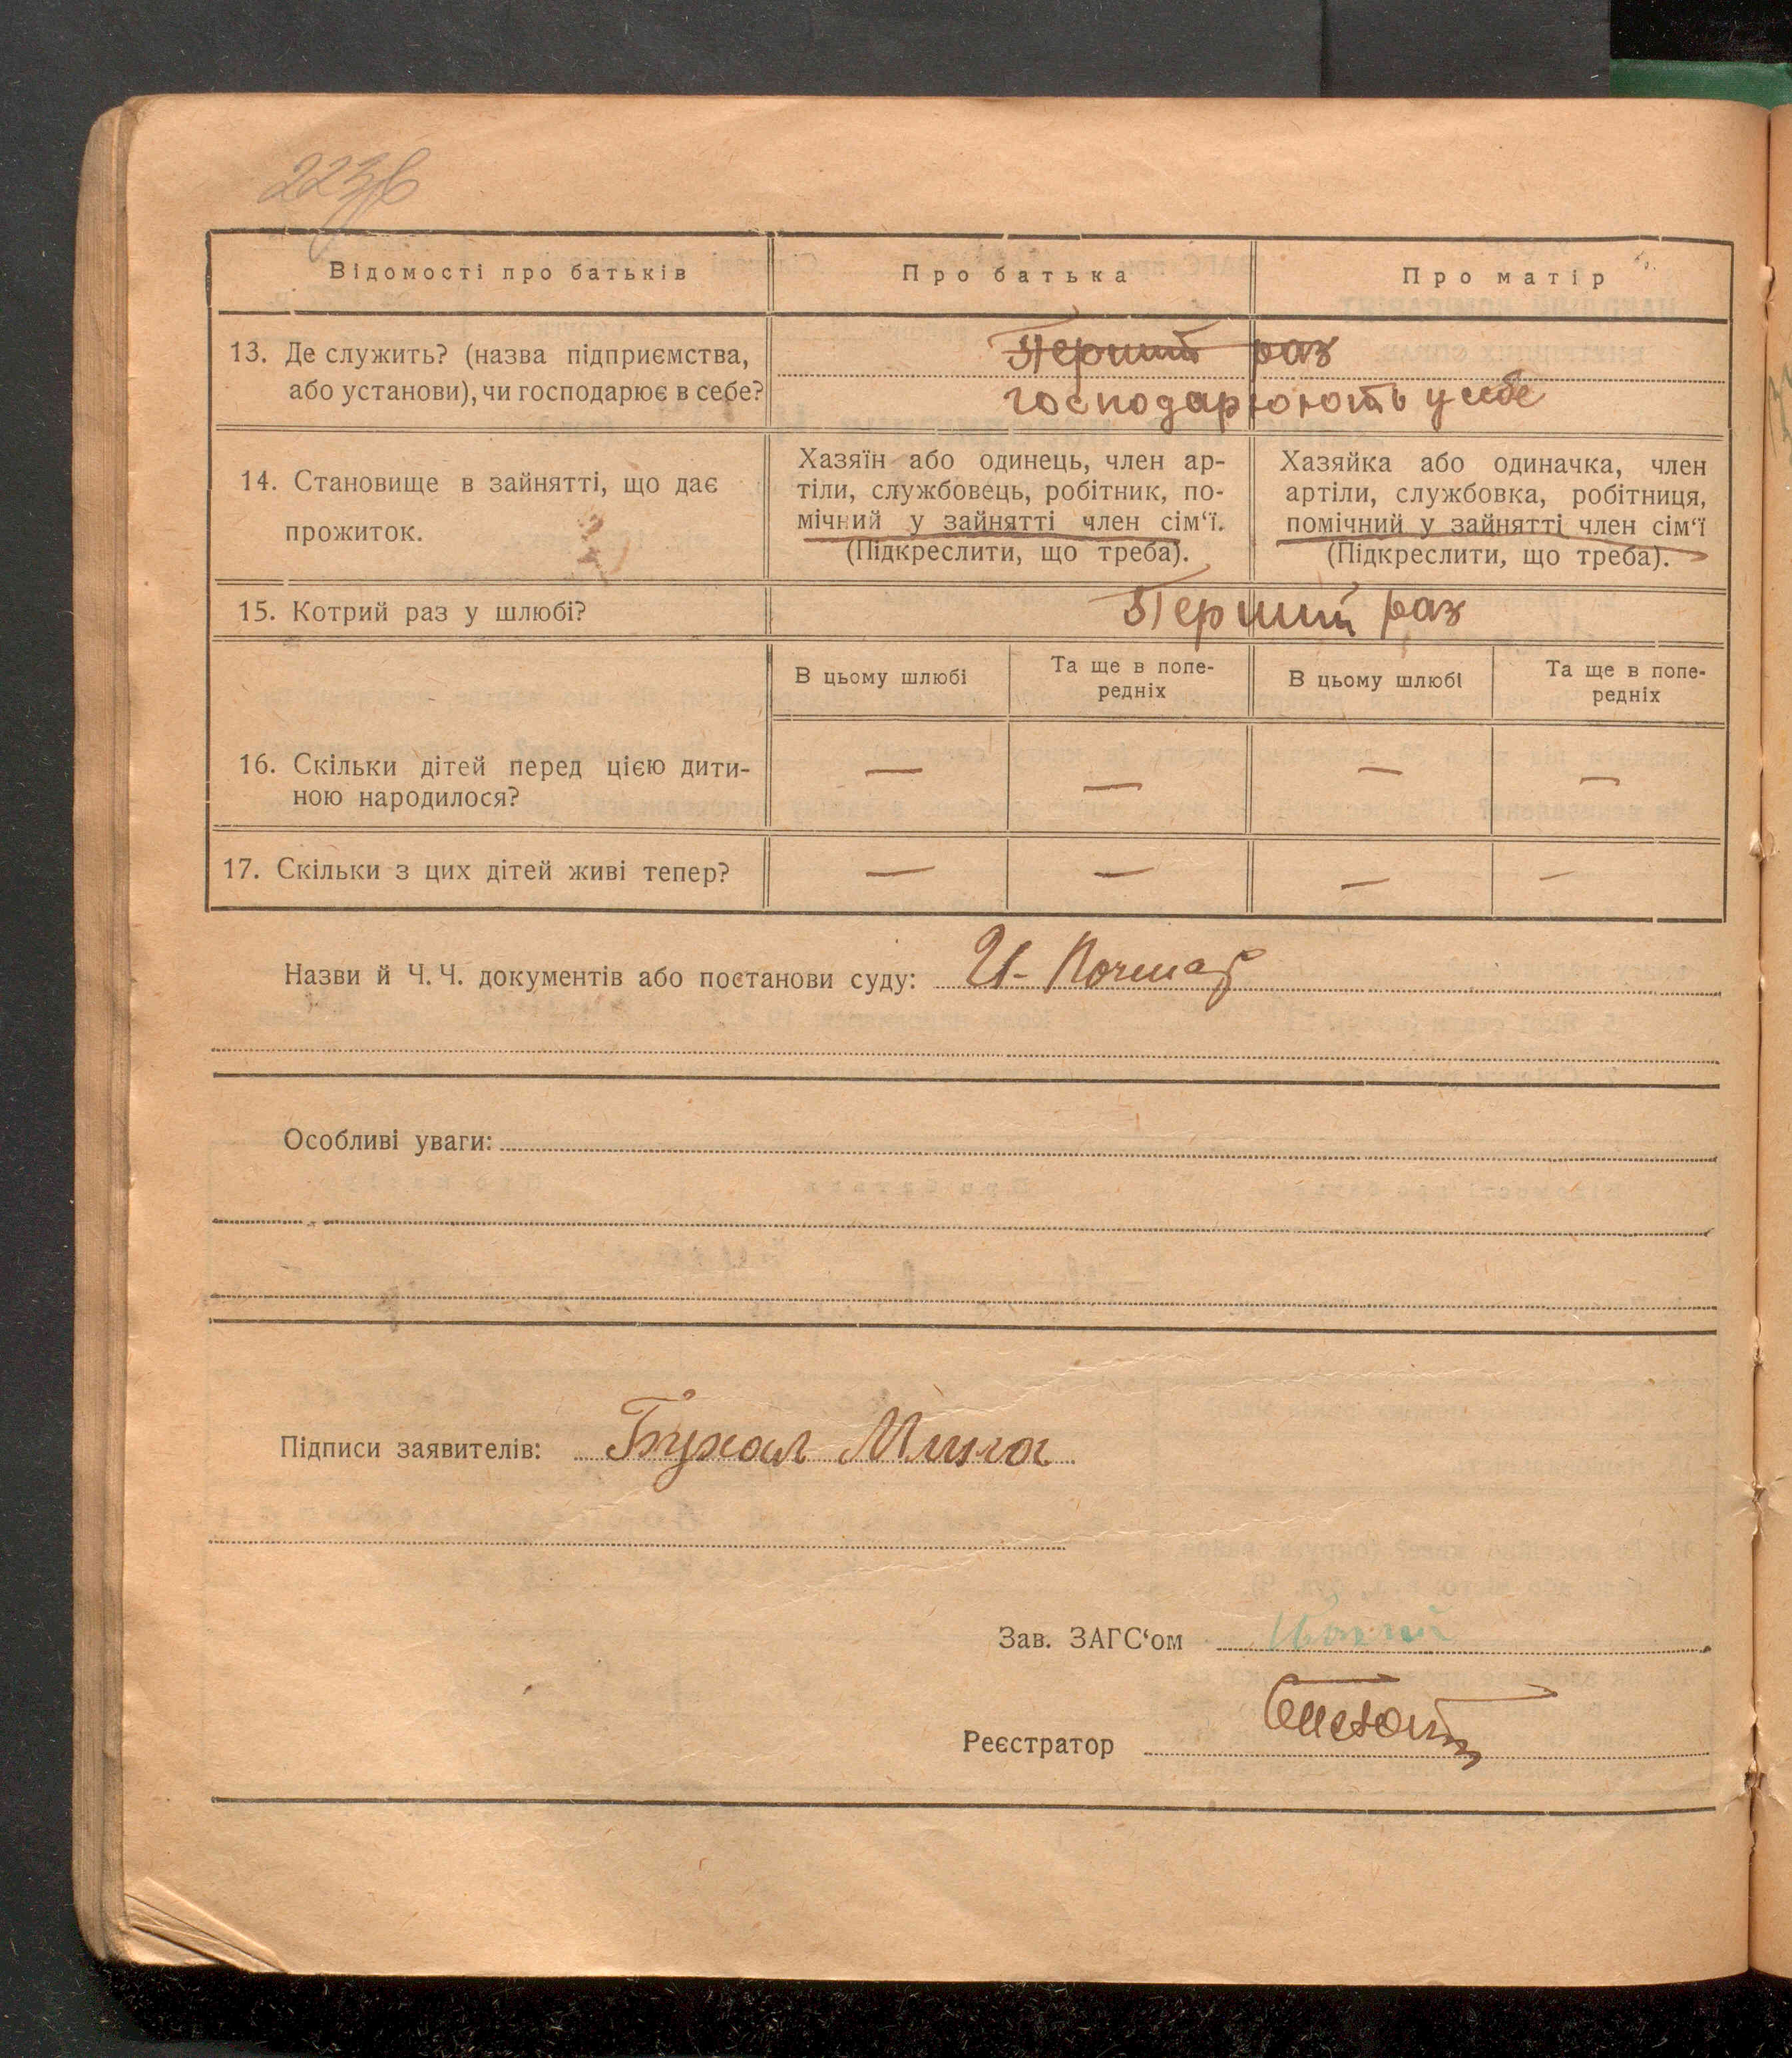 223
Відомості про батьків
Про батька
Про матір
13. Де служить? (назва підприємства,
або установи), чи господарює в себе?
Перший раз
господарюють у себе
14. Становище в зайнятті, що дає
прожиток.
Хазяїн або одинець, член ар-
тіли, службовець, робітник, по-
мічний у зайнятті член сім‘ї.
(Підкреслити, що треба).
Хазяйка або одиначка, член
артіли, службовка, робітниця,
помічний у зайнятті член сім‘ї
(Підкреслити, що треба).
15. Котрий раз у шлюбі?
Перший раз
В цьому шлюбі
Та ще в попе-
редніх
В цьому шлюбі
Та ще в попе-
редніх
16. Скільки дітей перед цією дити-
ною народилося?
— — — —
17. Скільки з цих дітей живі тепер?
— — — —
Назви й Ч. Ч. документів або постанови суду:
Особливі уваги:
Підписи заявителів:
Зав. ЗАГС‘ом
Реєстратор